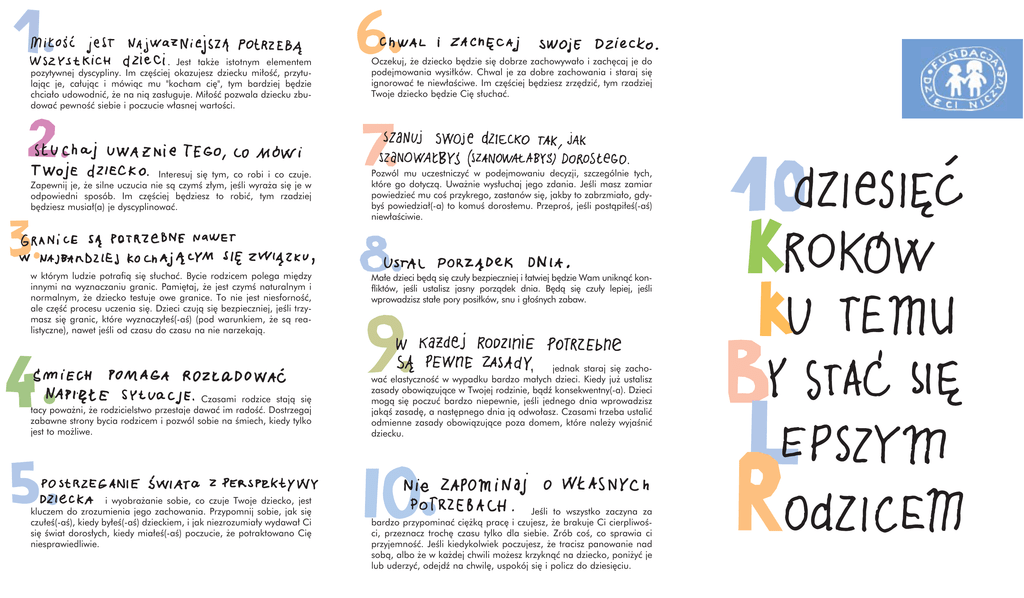 1. Miłość jest najważniejszą potrzebą
wszystkich dzieci. Jest także istotnym elementem
pozytywnej dyscypliny. Im częściej okazujesz dziecku miłość, przytu-
lając je, całując i mówiąc mu "kocham cię", tym bardziej będzie
chciało udowodnić, że na nią zasługuje. Miłość pozwala dziecku zbu-
dować pewność siebie i poczucie własnej wartości.
2. Słuchaj uważnie tego, co mówi
Twoje dziecko. Interesuj się tym, co robi i co czuje.
Zapewnij je, że silne uczucia nie są czymś złym, jeśli wyraża się je w
odpowiedni sposób. Im częściej będziesz to robić, tym rzadziej
będziesz musiał(a) je dyscyplinować.
3. Granice są potrzebne nawet
w najbardziej kochającym się związku,
w którym ludzie potrafią się słuchać. Bycie rodzicem polega między
innymi na wyznaczaniu granic. Pamiętaj, że jest czymś naturalnym i
normalnym, że dziecko testuje owe granice. To nie jest niesforność,
ale część procesu uczenia się. Dzieci czują się bezpieczniej, jeśli trzy-
masz się granic, które wyznaczyłeś(-aś) (pod warunkiem, że są rea-
listyczne), nawet jeśli od czasu do czasu na nie narzekają.
4. Śmiech pomaga rozładować
napięte sytuacje. Czasami rodzice stają się
tacy poważni, że rodzicielstwo przestaje dawać im radość. Dostrzegaj
zabawne strony bycia rodzicem i pozwól sobie na śmiech, kiedy tylko
jest to możliwe.
5 Postrzeganie świata z perspektywy
dziecka i wyobrażanie sobie, co czuje Twoje dziecko, jest
kluczem do zrozumienia jego zachowania. Przypomnij sobie, jak się
czułeś(-aś), kiedy byłeś(-aś) dzieckiem, i jak niezrozumiały wydawał Ci
się świat dorosłych, kiedy miałeś(-aś) poczucie, że potraktowano Cię
niesprawiedliwie.
6. Chwal i zachęcaj swoje dziecko.
Oczekuj, że dziecko będzie się dobrze zachowywało i zachęcaj je do
podejmowania wysiłków. Chwal je za dobre zachowania i staraj się
ignorować te niewłaściwe. Im częściej będziesz zrzędzić, tym rzadziej
Twoje dziecko będzie Cię słuchać.
7. Szanuj swoje dziecko tak, jak
szanowałbyś (szanowałabyś) dorosłego.
Pozwól mu uczestniczyć w podejmowaniu decyzji, szczególnie tych,
które go dotyczą. Uważnie wysłuchaj jego zdania. Jeśli masz zamiar
powiedzieć mu coś przykrego, zastanów się, jakby to zabrzmiało, gdy-
byś powiedział(-a) to komuś dorosłemu. Przeproś, jeśli postąpiłeś(-aś)
niewłaściwie.
8. Ustal porządek dnia.
Małe dzieci będą się czuły bezpieczniej i łatwiej będzie Wam uniknąć kon-
fliktów, jeśli ustalisz jasny porządek dnia. Będą się czuły lepiej, jeśli
wprowadzisz stałe pory posiłków, snu i głośnych zabaw.
9. W każdej rodzinie potrzebne
są pewne zasady, jednak staraj się zacho-
wać elastyczność w wypadku bardzo małych dzieci. Kiedy już ustalisz
zasady obowiązujące w Twojej rodzinie, bądź konsekwentny(-a). Dzieci
mogą się poczuć bardzo niepewnie, jeśli jednego dnia wprowadzisz
jakąś zasadę, a następnego dnia ją odwołasz. Czasami trzeba ustalić
odmienne zasady obowiązujące poza domem, które należy wyjaśnić
dziecku.
10. Nie zapominaj o własnych
potrzebach. Jeśli to wszystko zaczyna za
bardzo przypominać ciężką pracę i czujesz, że brakuje Ci cierpliwoś-
ci, przeznacz trochę czasu tylko dla siebie. Zrób coś, co sprawia ci
przyjemność. Jeśli kiedykolwiek poczujesz, że tracisz panowanie nad
sobą, albo że w każdej chwili możesz krzyknąć na dziecko, poniżyć je
lub uderzyć, odejdź na chwilę, uspokój się i policz do dziesięciu.
FUNDACJA
DZIECI NICZYJE
10 dziesięć
Kroków
ku temu
By stać się
Lepszym
Rodzicem